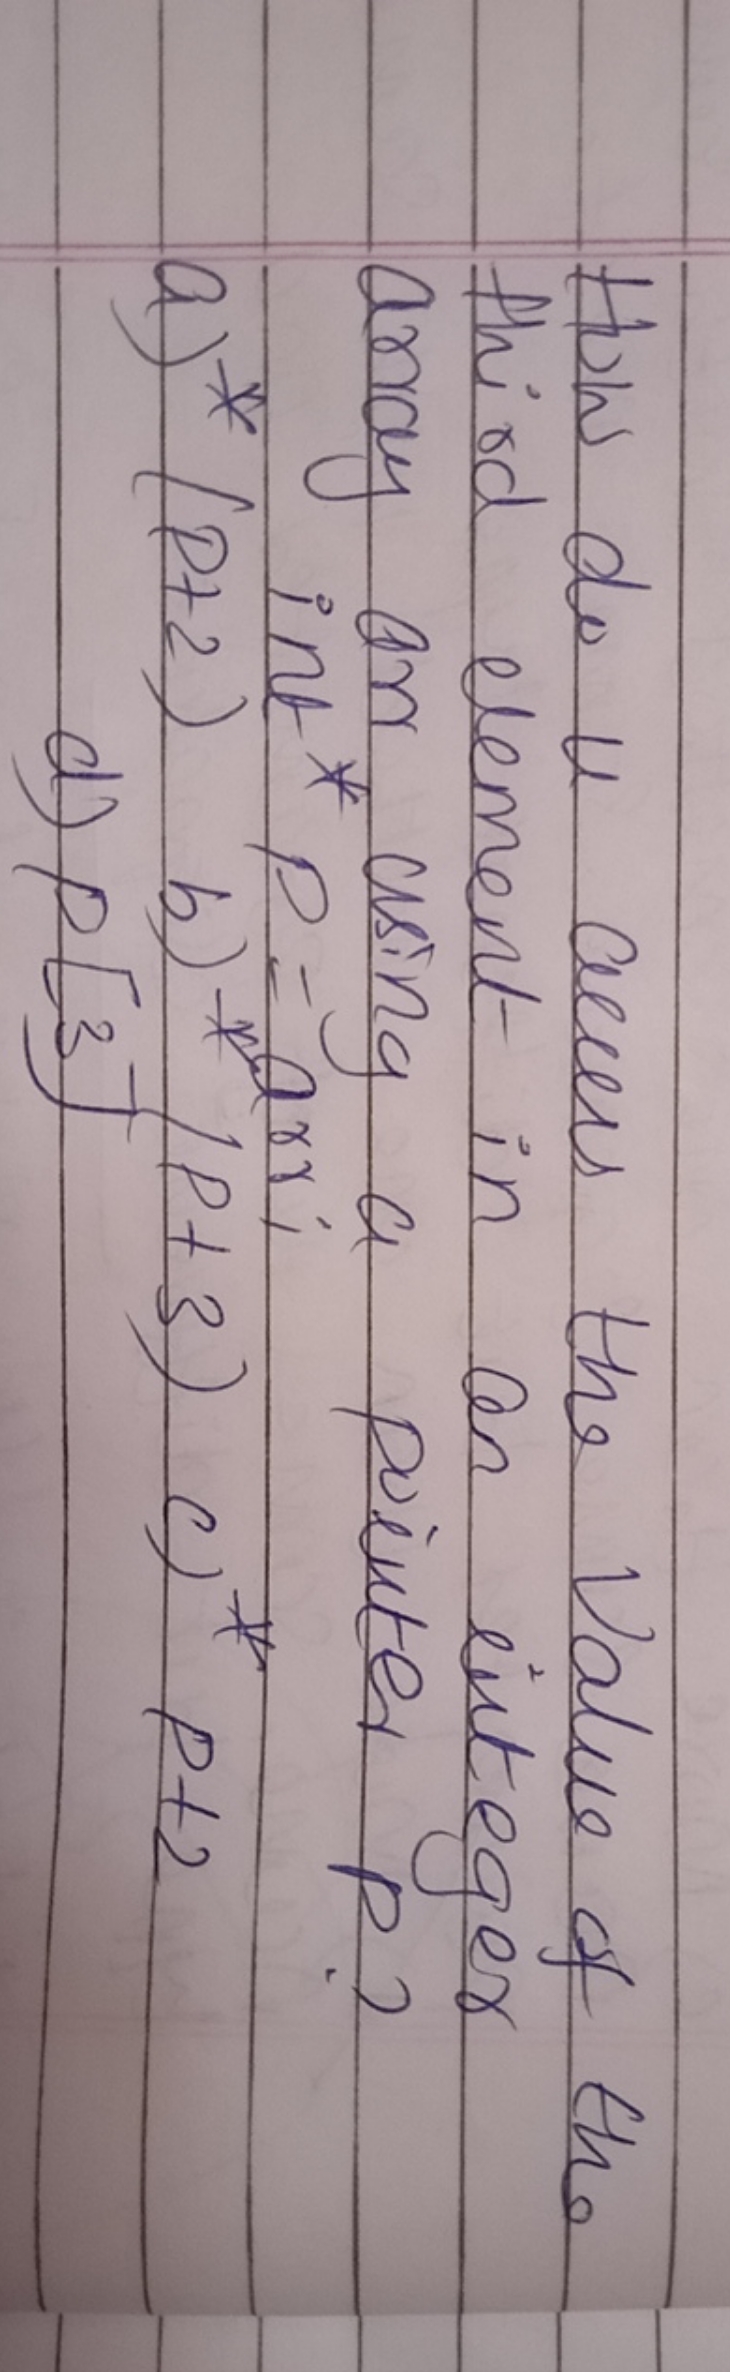 How do u access the value of the
third element in an integer
array arr using a pointer p?
int* p = arr;
a) *(p+2) b) *(p+3) c) * p+2
d) p[3]